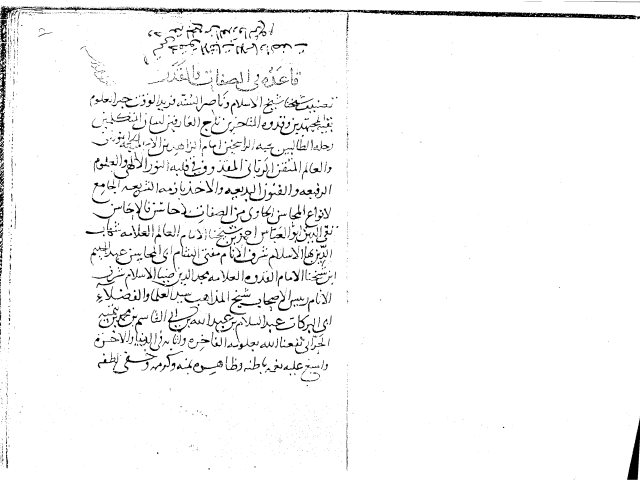 قاعده في الصفات والقدر
تصنيف شيخنا شيخ الاسلام وناصر السنه فريد الوقت بحر العلوم
بقيه المجتهدين وقدوه المتاخرين تاج العارفين لسان المتكلمين
رحله الطالبين نخبه الراسخين امام الزاهدين
والعالم المتقن الرباني المقذوف في قلبه النور الالهي والعلوم
الرفيعه والفنون البديعه والاخذ بازمه الشريعه الجامع
لانواع المحاسن الحاوي من الصفات
تقي الدين ابو العباس احمد بن شيخنا الامام العالم العلامه شهاب
الدين بها الاسلام شرف الانام مفتي الشام ابي المحاسن عبد الحليم
ابن شيخنا الامام القدوه العلامه مجد الدين ضيا الاسلام شرف
الانام رييس الاصحاب شيخ المذاهب سيد العلما والفضلاء
ابي البركات عبد السلام بن عبد الله بن ابي القاسم بن محمد بن تيميه
الحراني نفعنا الله بعلومه الفاخره واثابه في الدنيا والاخره
واسبغ عليه نعمه باطنه وظاهره بمنه وكرمه وخفي لطفه